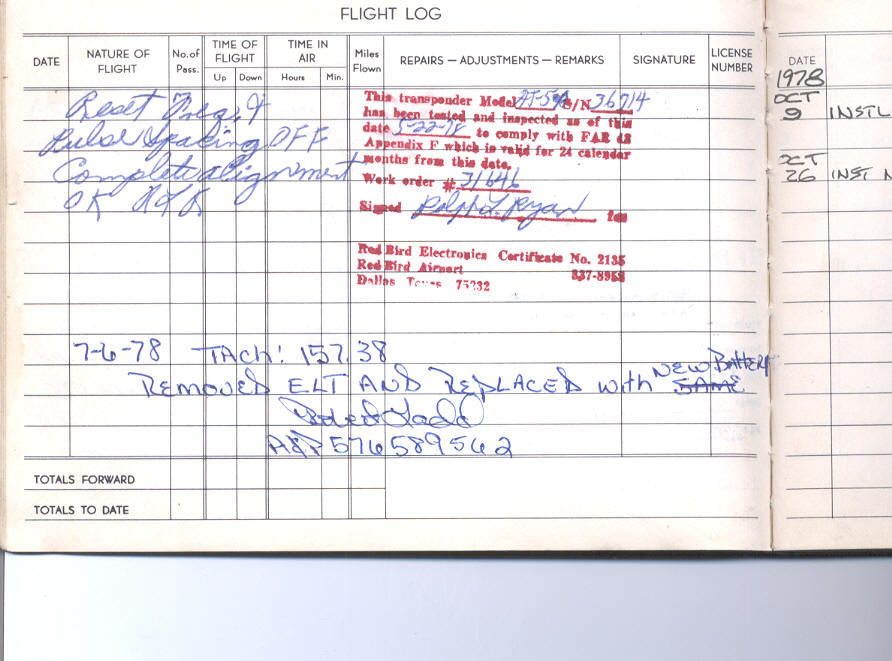 FLIGHT LOG
DATE
NATURE OF FLIGHT
No. of Pass.
TIME OF FLIGHT
Up Down
TIME IN AIR
Hours Min.
Miles Flown
REPAIRS — ADJUSTMENTS — REMARKS
SIGNATURE
LICENSE NUMBER
Reset Freq. &
Pulse Spacing OFF
Complete alignment
OK
This transponder Model AT-50A S/N 36714
has been tested and inspected as of this
date 5-22-78 to comply with FAR 43
Appendix F which is valid for 24 calendar
months from this date.
Work order # 31646
Signed Ralph L. Ryan for
Red Bird Electronics Certificate No. 2135
Red Bird Airport 337-8958
Dallas Texas 75232
7-6-78 TACH: 157.38
REMOVED ELT AND REPLACED with NEW BATTERY
SAME
Robert Ladd
A&P 576589562
TOTALS FORWARD
TOTALS TO DATE
DATE
1978
OCT
9 INSTL
OCT
26 INST